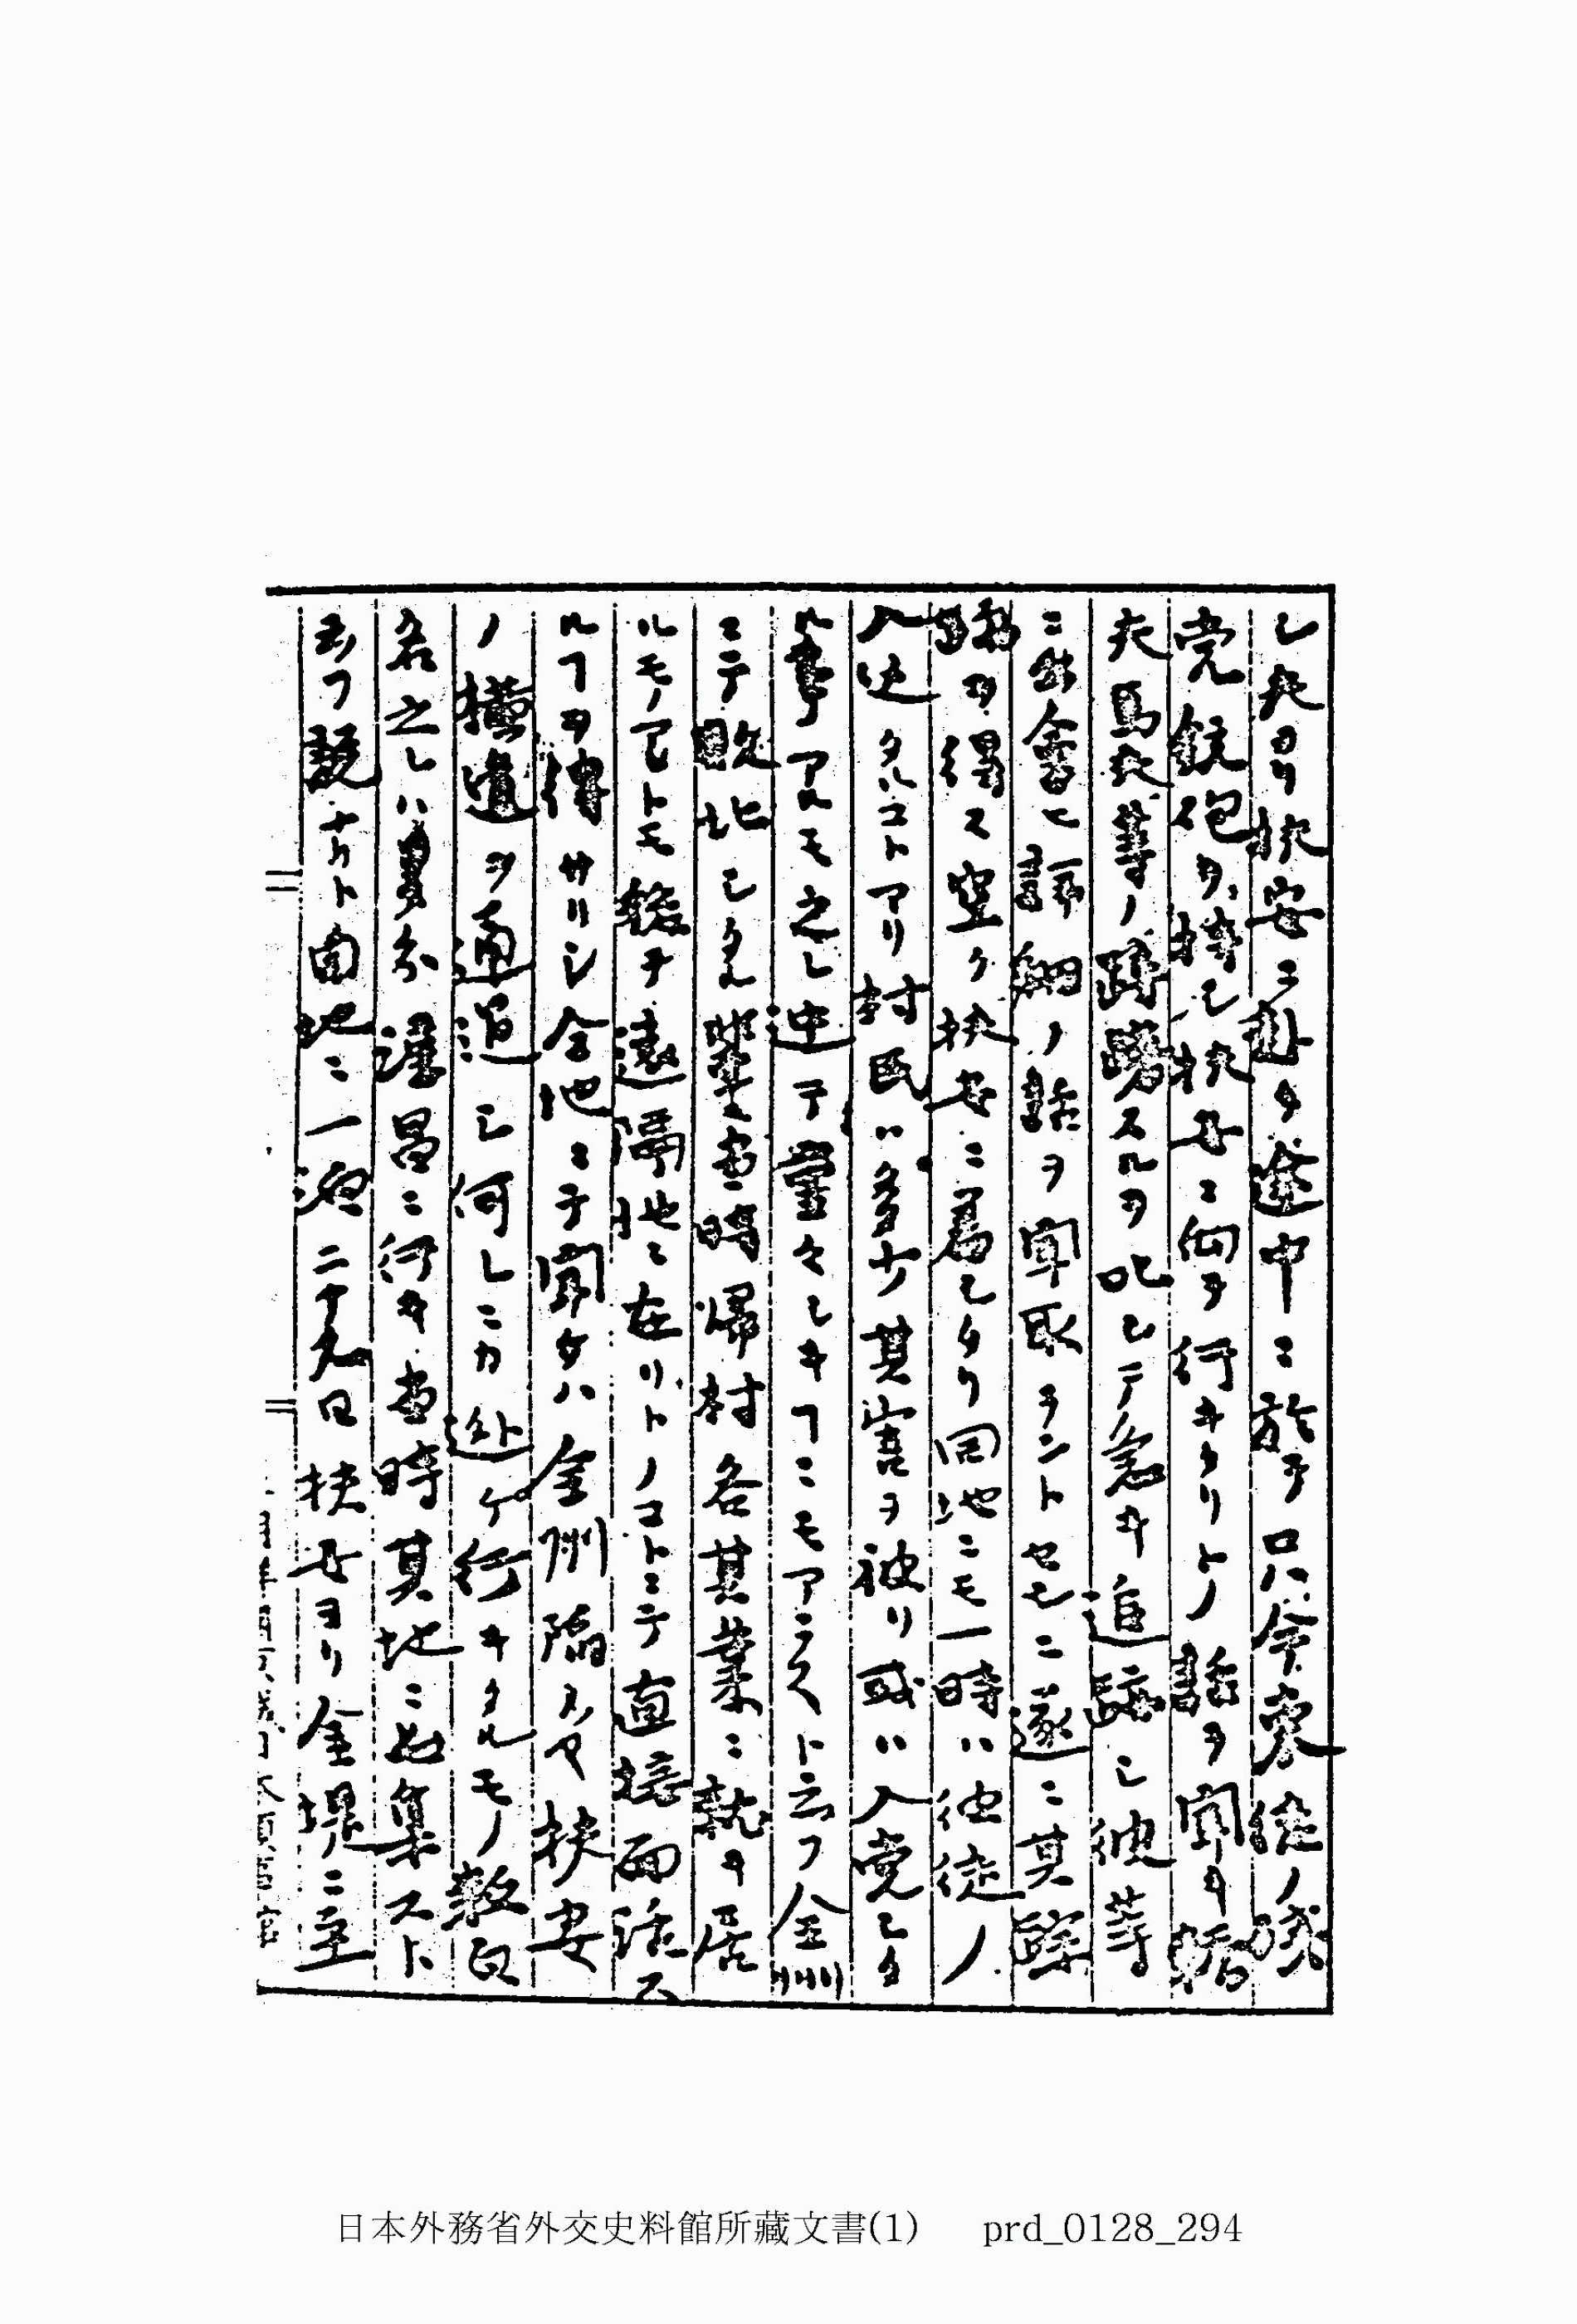 レ夫ヨリ扶安ニ赴ク途中ニ於テ只今東徒ノ残
党銃砲ヲ携ヘ扶安ニ向ヲ行キタリトノ話ヲ聞キ
夫馬夫等ノ躊躇スルヲ叱シテ急キ追跡シ彼等
ニ出会ヒ詳細ノ話ヲ聞取ラントセシニ遂ニ其踪
跡ヲ得ス空ク扶安ニ着シタリ同地ニモ一時ハ彼徒ノ
入込タルコトアリ村民ハ多少其害ヲ被リ或ハ入党シタ
ル事アルモ之レ迚テ着々シキヿニモアラスト云フ全州
ニテ敗北シタル輩当時帰村各其業ニ就キ居
ルモノアレトモ総テ遠隔地ニ在リトノコトニテ直接面話ス
ルヿヲ得サリシ全地ニテ聞ケハ全州陥ノ後扶安
ノ横道ヲ通過シ何レニカ逃ケ行キタルモノ数百
名之レハ多分淳昌ニ行キ当時其地ニ屯集スト
云フ説ナリト同地ニ一泊二十九日扶安ヨリ金堤ニ至
日本外務省外交史料館所藏文書(1) prd_0128_294